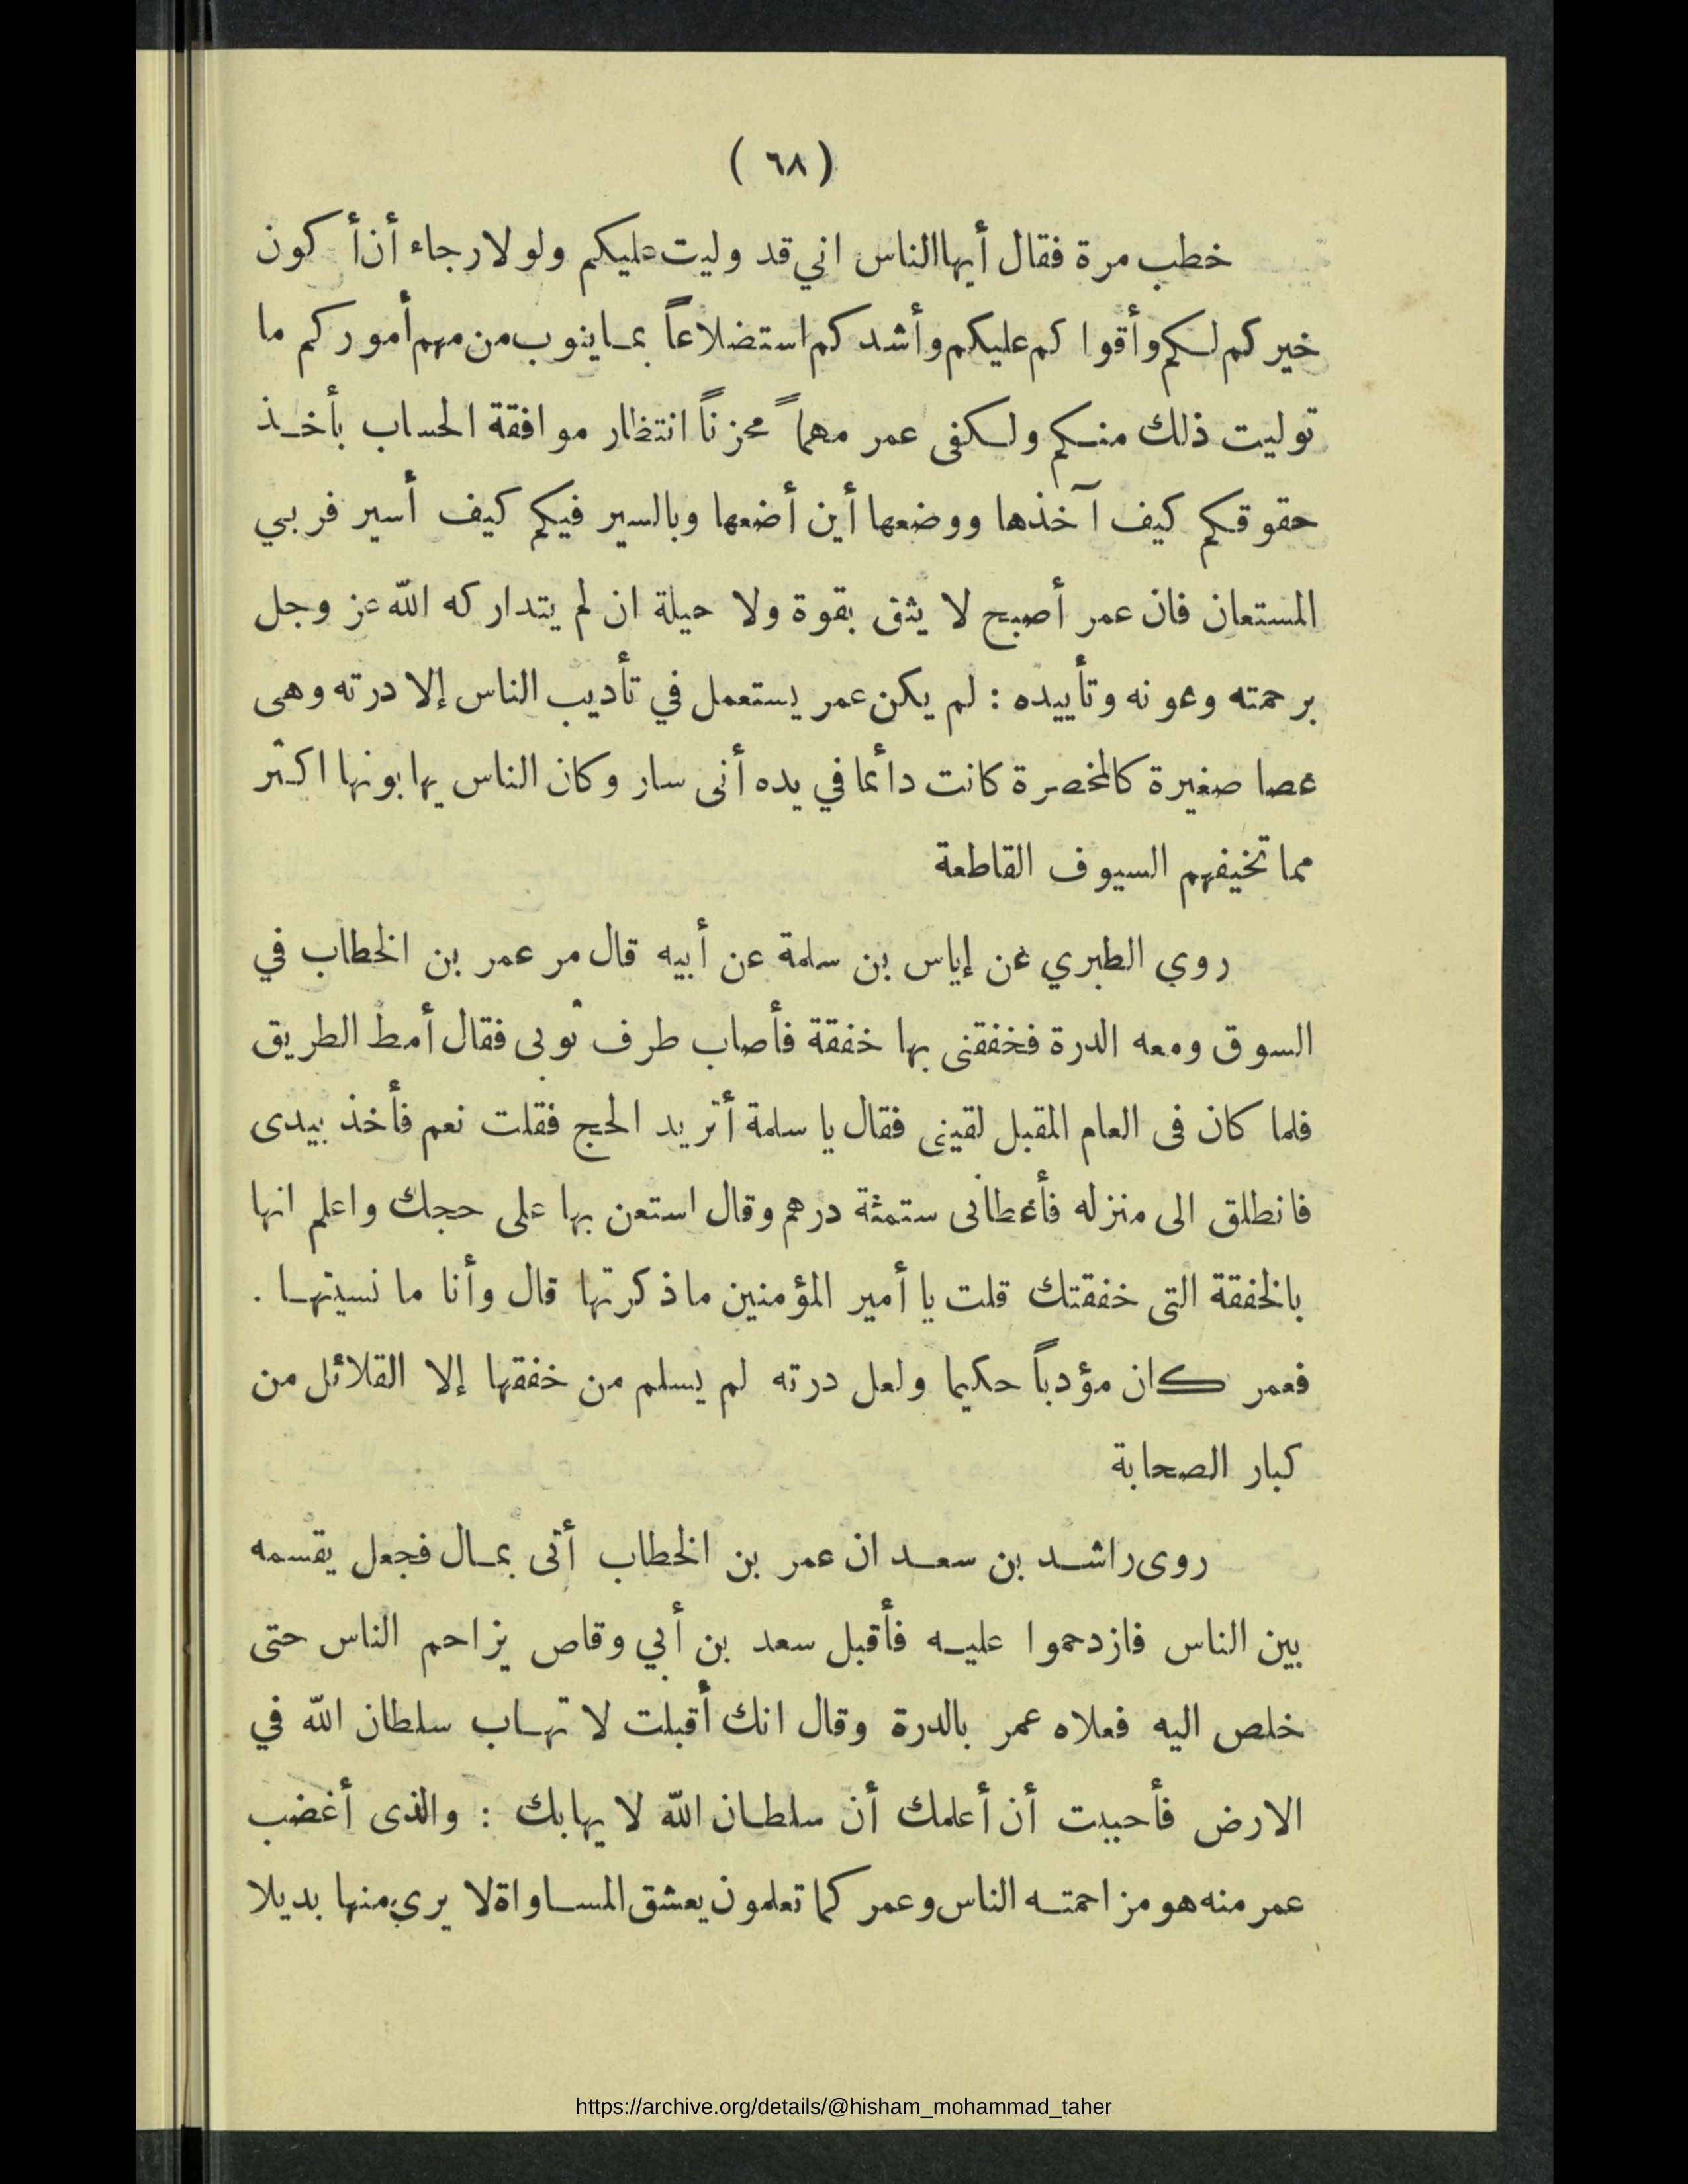 ( ٦٨ )
خطب مرة فقال أيها الناس اني قد وليت عليكم ولولا رجاء أن أكون
خيركم لكم وأقواكم عليكم وأشدكم استضلاعاً بما ينوب من مهم أموركم ما
توليت ذلك منكم ولكفى عمر مهماً محزناً انتظار موافقة الحساب بأخذ
حقوقكم كيف آخذها ووضعها أين أضعها وبالسير فيكم كيف أسير فربي
المستعان فان عمر أصبح لا يثق بقوة ولا حيلة ان لم يتداركه الله عز وجل
برحمته وعونه وتأييده : لم يكن عمر يستعمل في تأديب الناس إلا درته وهى
عصا صغيرة كالمخصرة كانت دائما في يده أنى سار وكان الناس يهابونها اكثر
مما تخيفهم السيوف القاطعة
روي الطبري عن إياس بن سلمة عن أبيه قال مر عمر بن الخطاب في
السوق ومعه الدرة فخفقنى بها خفقة فأصاب طرف ثوبى فقال أمط الطريق
فلما كان فى العام المقبل لقينى فقال يا سلمة أتريد الحج فقلت نعم فأخذ بيدى
فانطلق الى منزله فأعطانى ستمئة درهم وقال استعن بها على حجك واعلم انها
بالخفقة التى خفقتك قلت يا أمير المؤمنين ماذكرتها قال وأنا ما نسيتها .
فعمر كان مؤدباً حكيما ولعل درته لم يسلم من خفقها إلا القلائل من
كبار الصحابة
روى راشد بن سعد ان عمر بن الخطاب أتى بمال فجعل يقسمه
بين الناس فازدحموا عليه فأقبل سعد بن أبي وقاص يزاحم الناس حتى
خلص اليه فعلاه عمر بالدرة وقال انك أقبلت لا تهاب سلطان الله في
الارض فأحببت أن أعلمك أن سلطان الله لا يهابك : والذى أغضب
عمر منه هو مزاحمته الناس وعمر كما تعلمون يعشق المساواة لا يرى منها بديلا
https://archive.org/details/@hisham_mohammad_taher